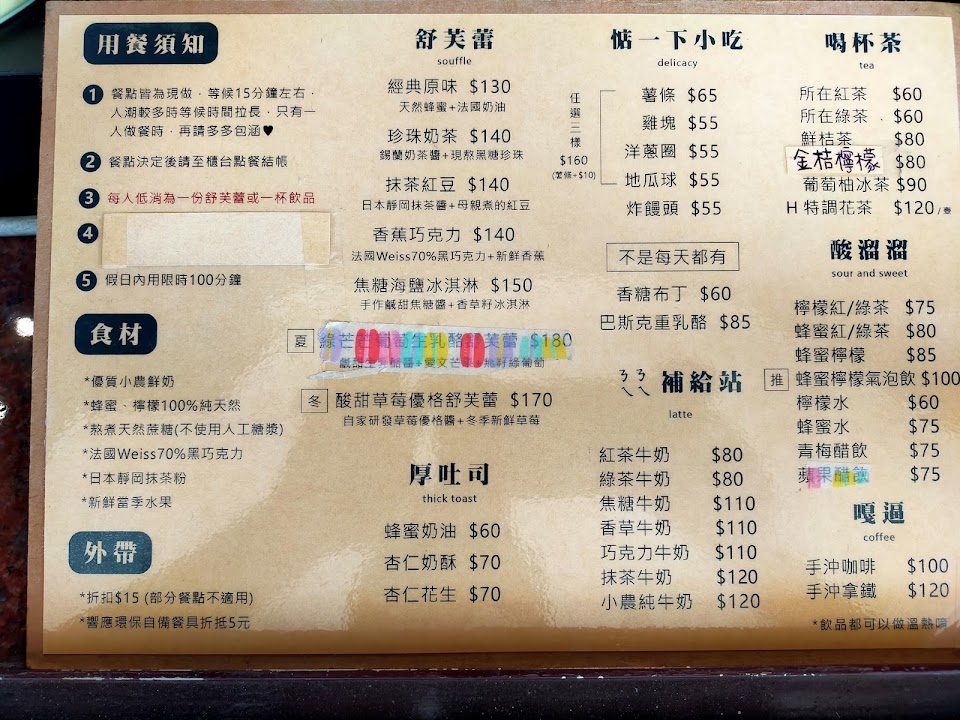 用餐須知
1 餐點皆為現做，等候15分鐘左右，
人潮較多時等候時間拉長，只有一
人做餐時，再請多多包涵♥
2 餐點決定後請至櫃台點餐結帳
3 每人低消為一份舒芙蕾或一杯飲品
4
5 假日內用限時100分鐘
食材
*優質小農鮮奶
*蜂蜜、檸檬100%純天然
*熬煮天然蔗糖(不使用人工糖漿)
*法國Weiss70%黑巧克力
*日本靜岡抹茶粉
*新鮮當季水果
外帶
*折扣$15 (部分餐點不適用)
*響應環保自備餐具折抵5元
舒芙蕾
souffle
經典原味 $130
天然蜂蜜+法國奶油
珍珠奶茶 $140
錫蘭奶茶醬+現熬黑糖珍珠
抹茶紅豆 $140
日本靜岡抹茶醬+母親煮的紅豆
香蕉巧克力 $140
法國Weiss70%黑巧克力+新鮮香蕉
焦糖海鹽冰淇淋 $150
手作鹹甜焦糖醬+香草籽冰淇淋
夏 綠芒 葡萄生乳酪舒芙蕾 $180
鹹甜生乳酪醬+愛文芒果+無籽綠葡萄
冬 酸甜草莓優格舒芙蕾 $170
自家研發草莓優格醬+冬季新鮮草莓
厚吐司
thick toast
蜂蜜奶油 $60
杏仁奶酥 $70
杏仁花生 $70
惦一下小吃
delicacy
任選三樣
$160
(薯條+$10)
薯條 $65
雞塊 $55
洋蔥圈 $55
地瓜球 $55
炸饅頭 $55
不是每天都有
香糖布丁 $60
巴斯克重乳酪 $85
ㄋㄟㄋㄟ 補給站
latte
紅茶牛奶 $80
綠茶牛奶 $80
焦糖牛奶 $110
香草牛奶 $110
巧克力牛奶 $110
抹茶牛奶 $120
小農純牛奶 $120
喝杯茶
tea
所在紅茶 $60
所在綠茶 $60
鮮桔茶 $80
金桔檸檬 $80
葡萄柚冰茶 $90
H 特調花茶 $120/壺
酸溜溜
sour and sweet
檸檬紅/綠茶 $75
蜂蜜紅/綠茶 $80
蜂蜜檸檬 $85
推 蜂蜜檸檬氣泡飲 $100
檸檬水 $60
蜂蜜水 $75
青梅醋飲 $75
蘋果醋飲 $75
嘎逼
coffee
手沖咖啡 $100
手沖拿鐵 $120
*飲品都可以做溫熱唷